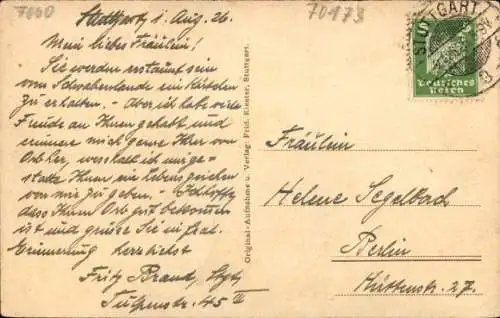 7660
70173
Stuttgart, 1. Aug. 26.
Mein liebes Fräulein!
Sie werden erstaunt sein
vom Schwabenlande ein Kärtchen
zu erhalten. - Aber ich habe viele
Freude an Ihnen gehabt und
erinnere mich gerne Ihrer von
her, weshalb ich mir ge-
statte Ihnen ein Lebenszeichen
von mir zu geben. - Ich hoffe
dass Ihnen Ort gut bekommen
ist und grüsse Sie in
Erinnerung herzlichst
Fritz Brand, Stgt,
45 III
Original-Aufnahme u. Verlag: Frid. Riester, Stuttgart.
STUTTGART
5
Deutsches
Reich
Fräulein
Helene Segelbach
Berlin
Hüttenstr. 27.